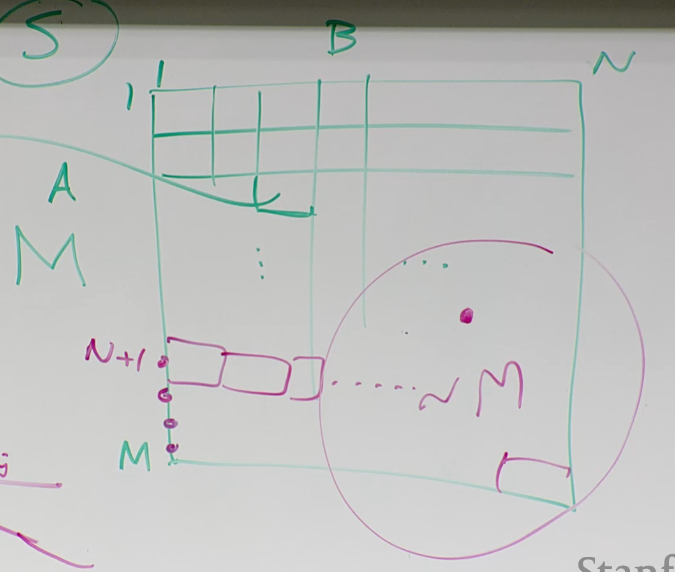 S
B
N
1
1
A
M
N+1
~ M
M
j
Stanf